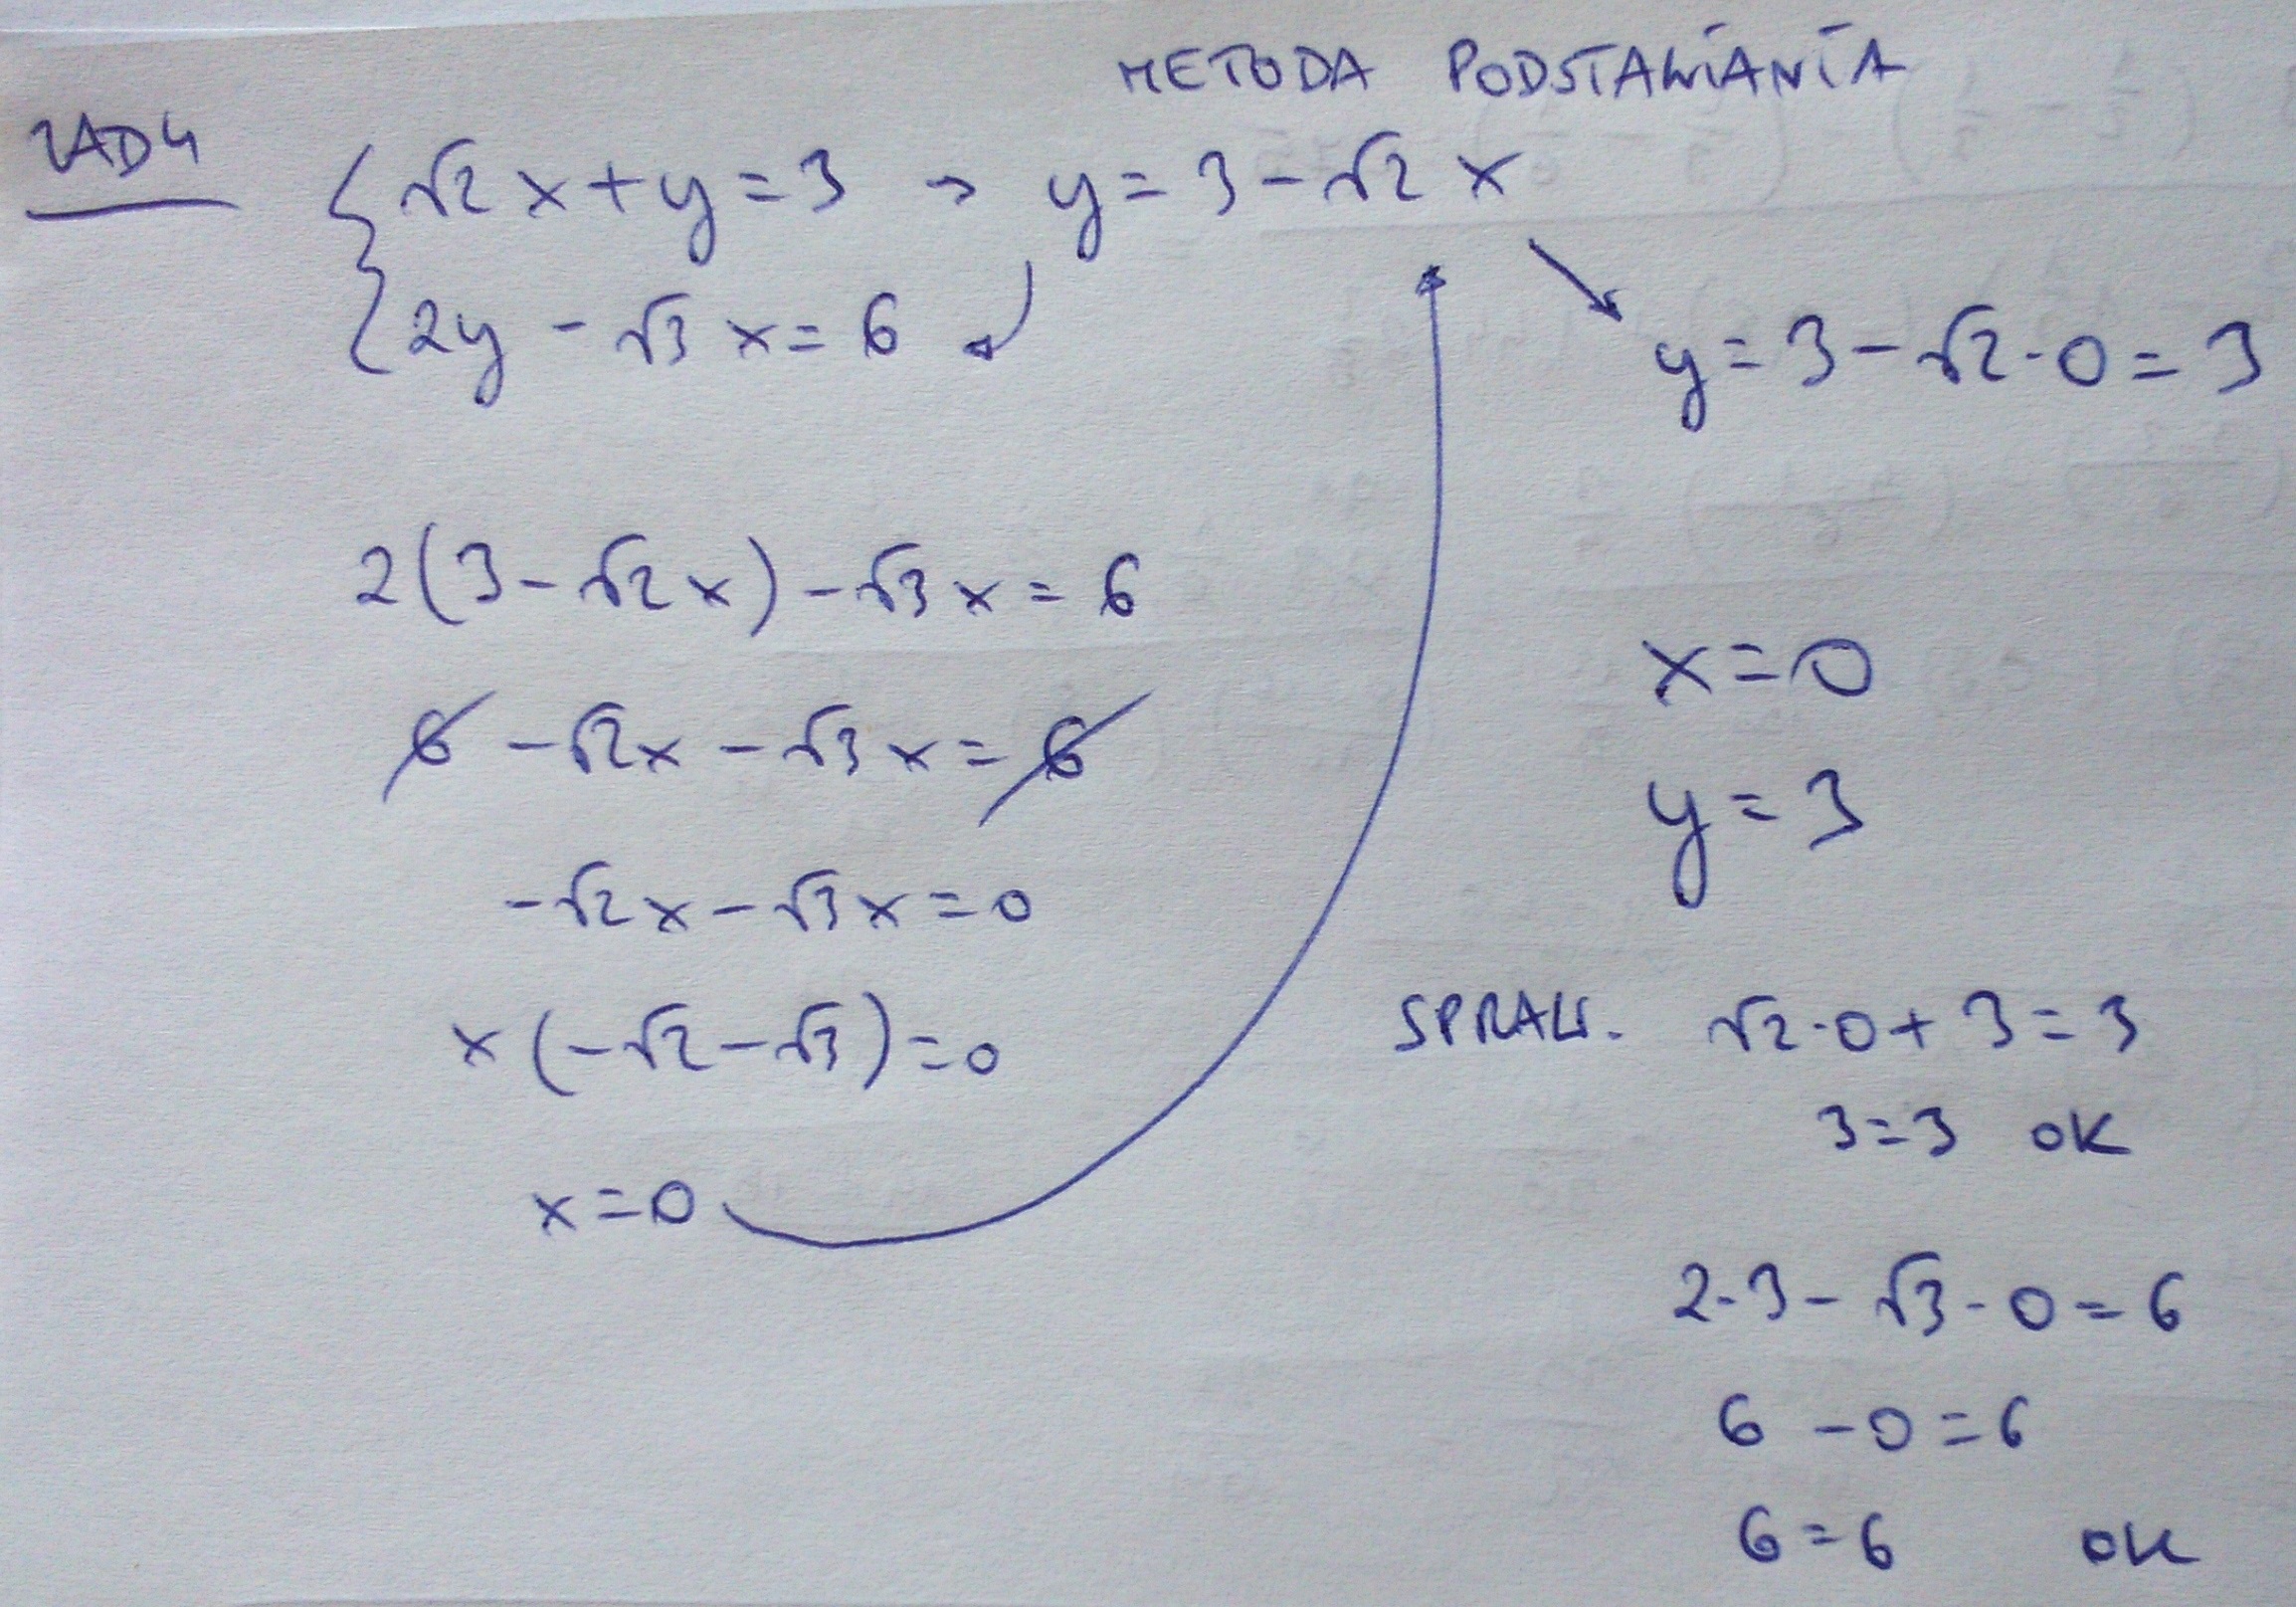 METODA PODSTAWIANIA
ZAD 4
√2 x + y = 3 → y = 3 - √2 x
2y - √3 x = 6
y = 3 - √2 · 0 = 3
2(3 - √2 x) - √3 x = 6
6 - √2 x - √3 x = 6
- √2 x - √3 x = 0
x (- √2 - √3) = 0
x = 0
x = 0
y = 3
SPRAW. √2 · 0 + 3 = 3
3 = 3 OK
2 · 3 - √3 · 0 = 6
6 - 0 = 6
6 = 6 OK